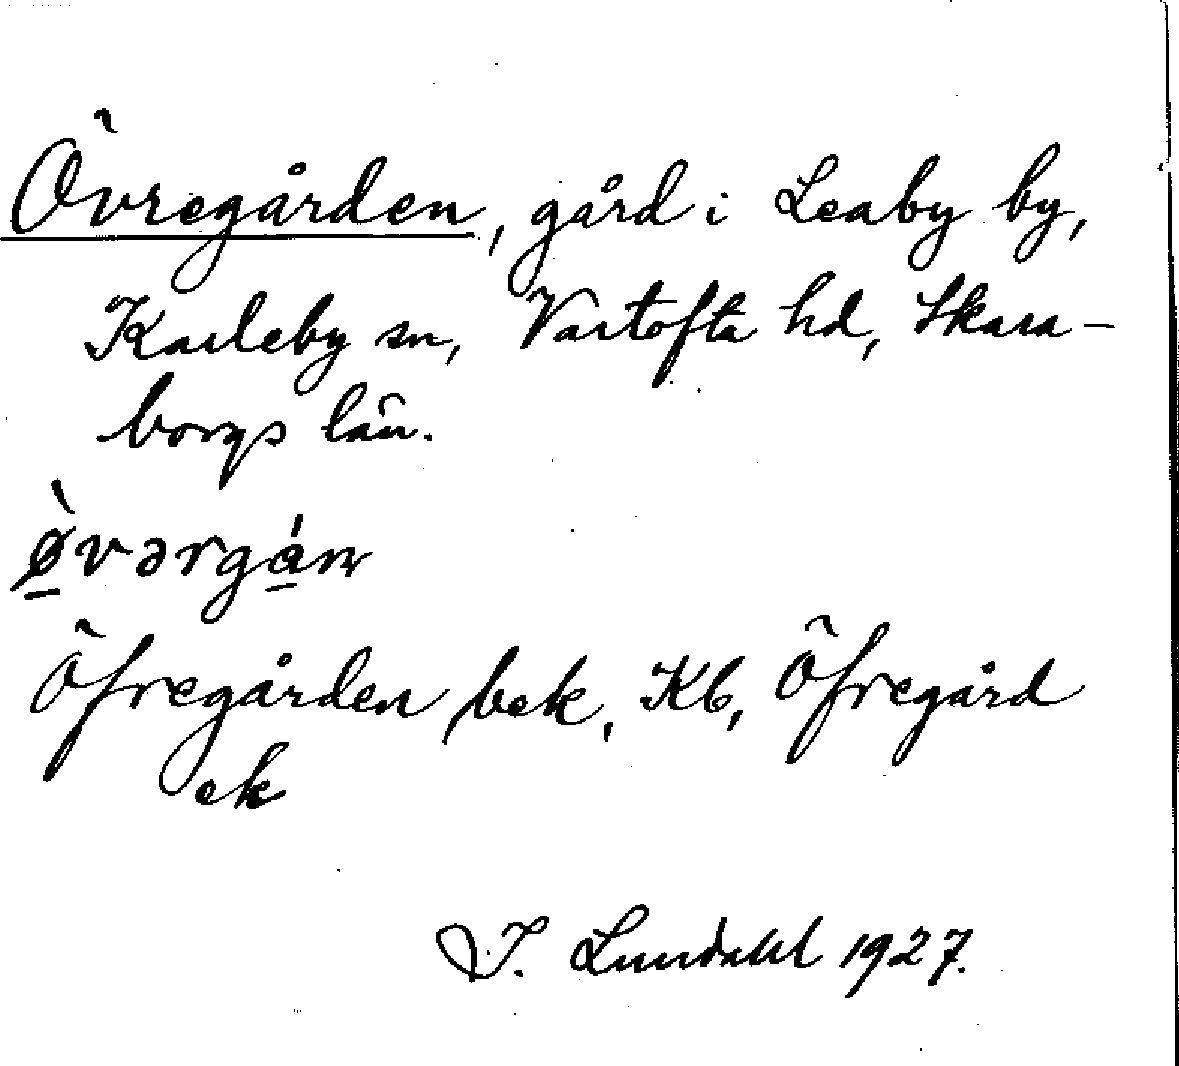 Övregården, gård i Leaby by,
Karleby sn, Vartofta hd, Skara-
borgs län.
ø̲̀vərgá̲n
Öfregården bek, Kb, Öfregård
ek
I. Lundahl 1927.